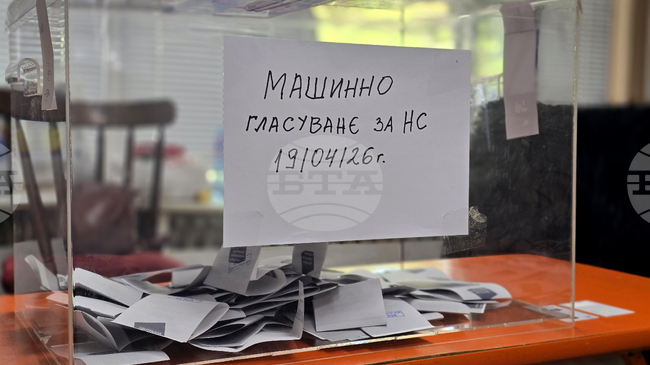 МАШИННО
ГЛАСУВАНЕ ЗА НС
19/04/26г.
БТА